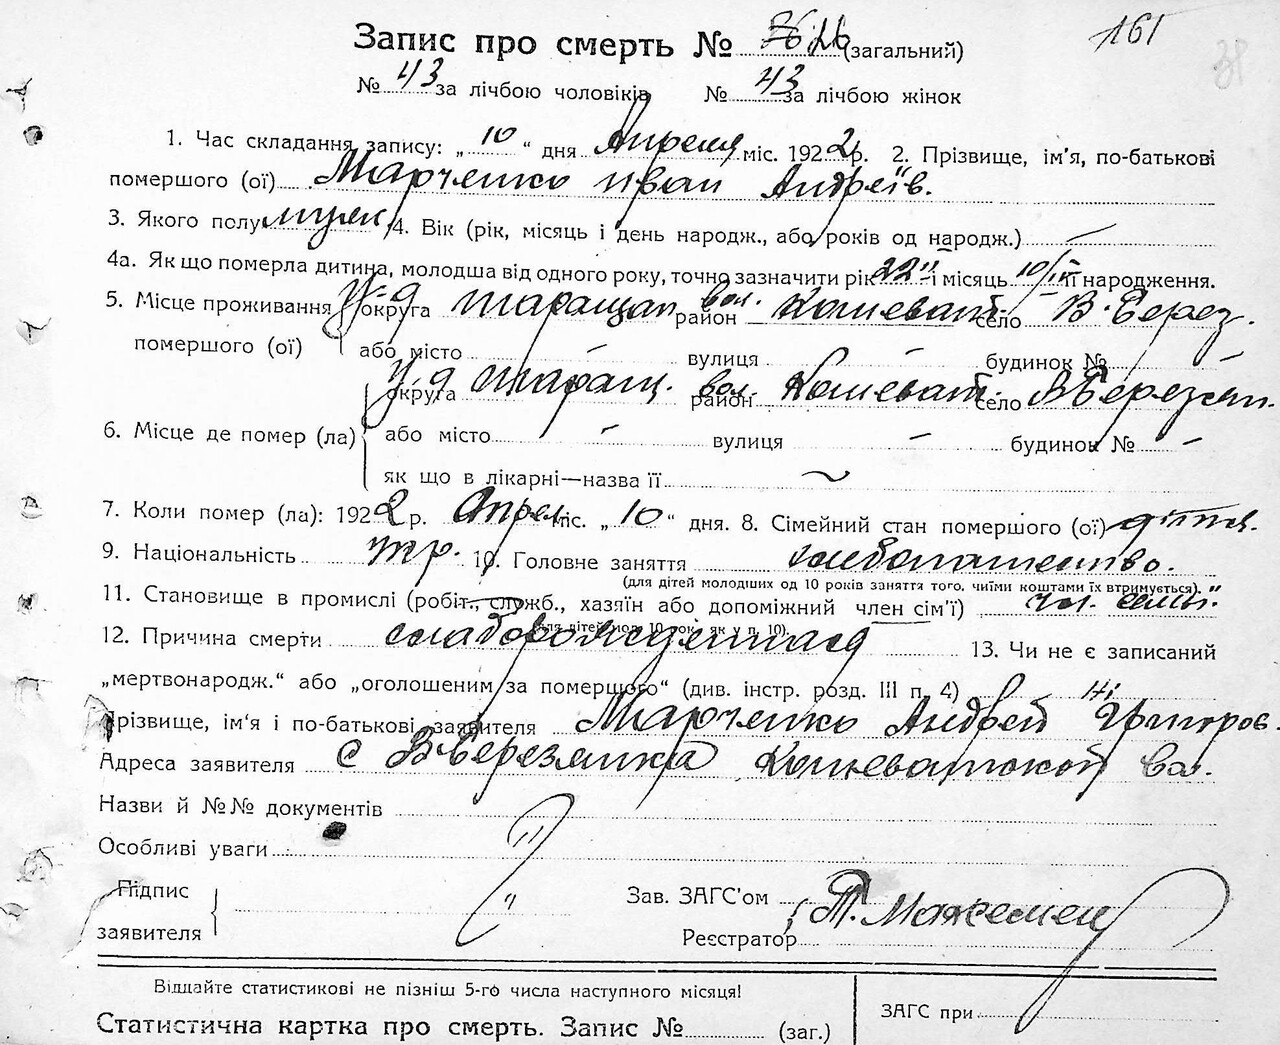 161
Запис про смерть № (загальний)
№ 43 за лічбою чоловіків № 43 за лічбою жінок
1. Час складання запису: „ 10 “ дня Апреля міс. 1922 р. 2. Прізвище, ім'я, по-батькові
помершого (ої) Марченко Иван Андреїв.
3. Якого полу муж. 4. Вік (рік, місяць і день народж., або років од народж.) —
4а. Як що померла дитина, молодша від одного року, точно зазначити рік 22 і місяць 10/ІV її народження.
5. Місце проживання у-д округа Таращан. вол. район Кошеват. село В. Берез.
помершого (ої) або місто - вулиця - будинок № -
у-д округа Таращ. вол. район Кошеват. село В Березян.
6. Місце де помер (ла) або місто - вулиця - будинок № -
як що в лікарні—назва її ~
7. Коли помер (ла): 1922 р. Апрел міс. „ 10 “ дня. 8. Сімейний стан помершого (ої) дитя.
9. Національність укр. 10. Головне заняття хлебопашество.
(для дітей молодших од 10 років заняття того, чиїми коштами їх втримується).
11. Становище в промислі (робіт., служб., хазяїн або допоміжний член сім'ї) чл. семьї
(для дітей мол. 10 рок. як у п. 10).
12. Причина смерти слаборожденная 13. Чи не є записаний
„мертвонародж.“ або „оголошеним за помершого“ (див. інстр. розд. III п. 4) Ні
Прізвище, ім'я і по-батькові заявителя Марченко Андрей Григоров.
Адреса заявителя с В Березянка Кошеватской вол.
Назви й №№ документів
Особливі уваги
Підпис
заявителя
Зав. ЗАГС'ом
Реєстратор
Віддайте статистикові не пізніш 5-го числа наступного місяця!
Статистична картка про смерть. Запис № (заг.)
ЗАГС при